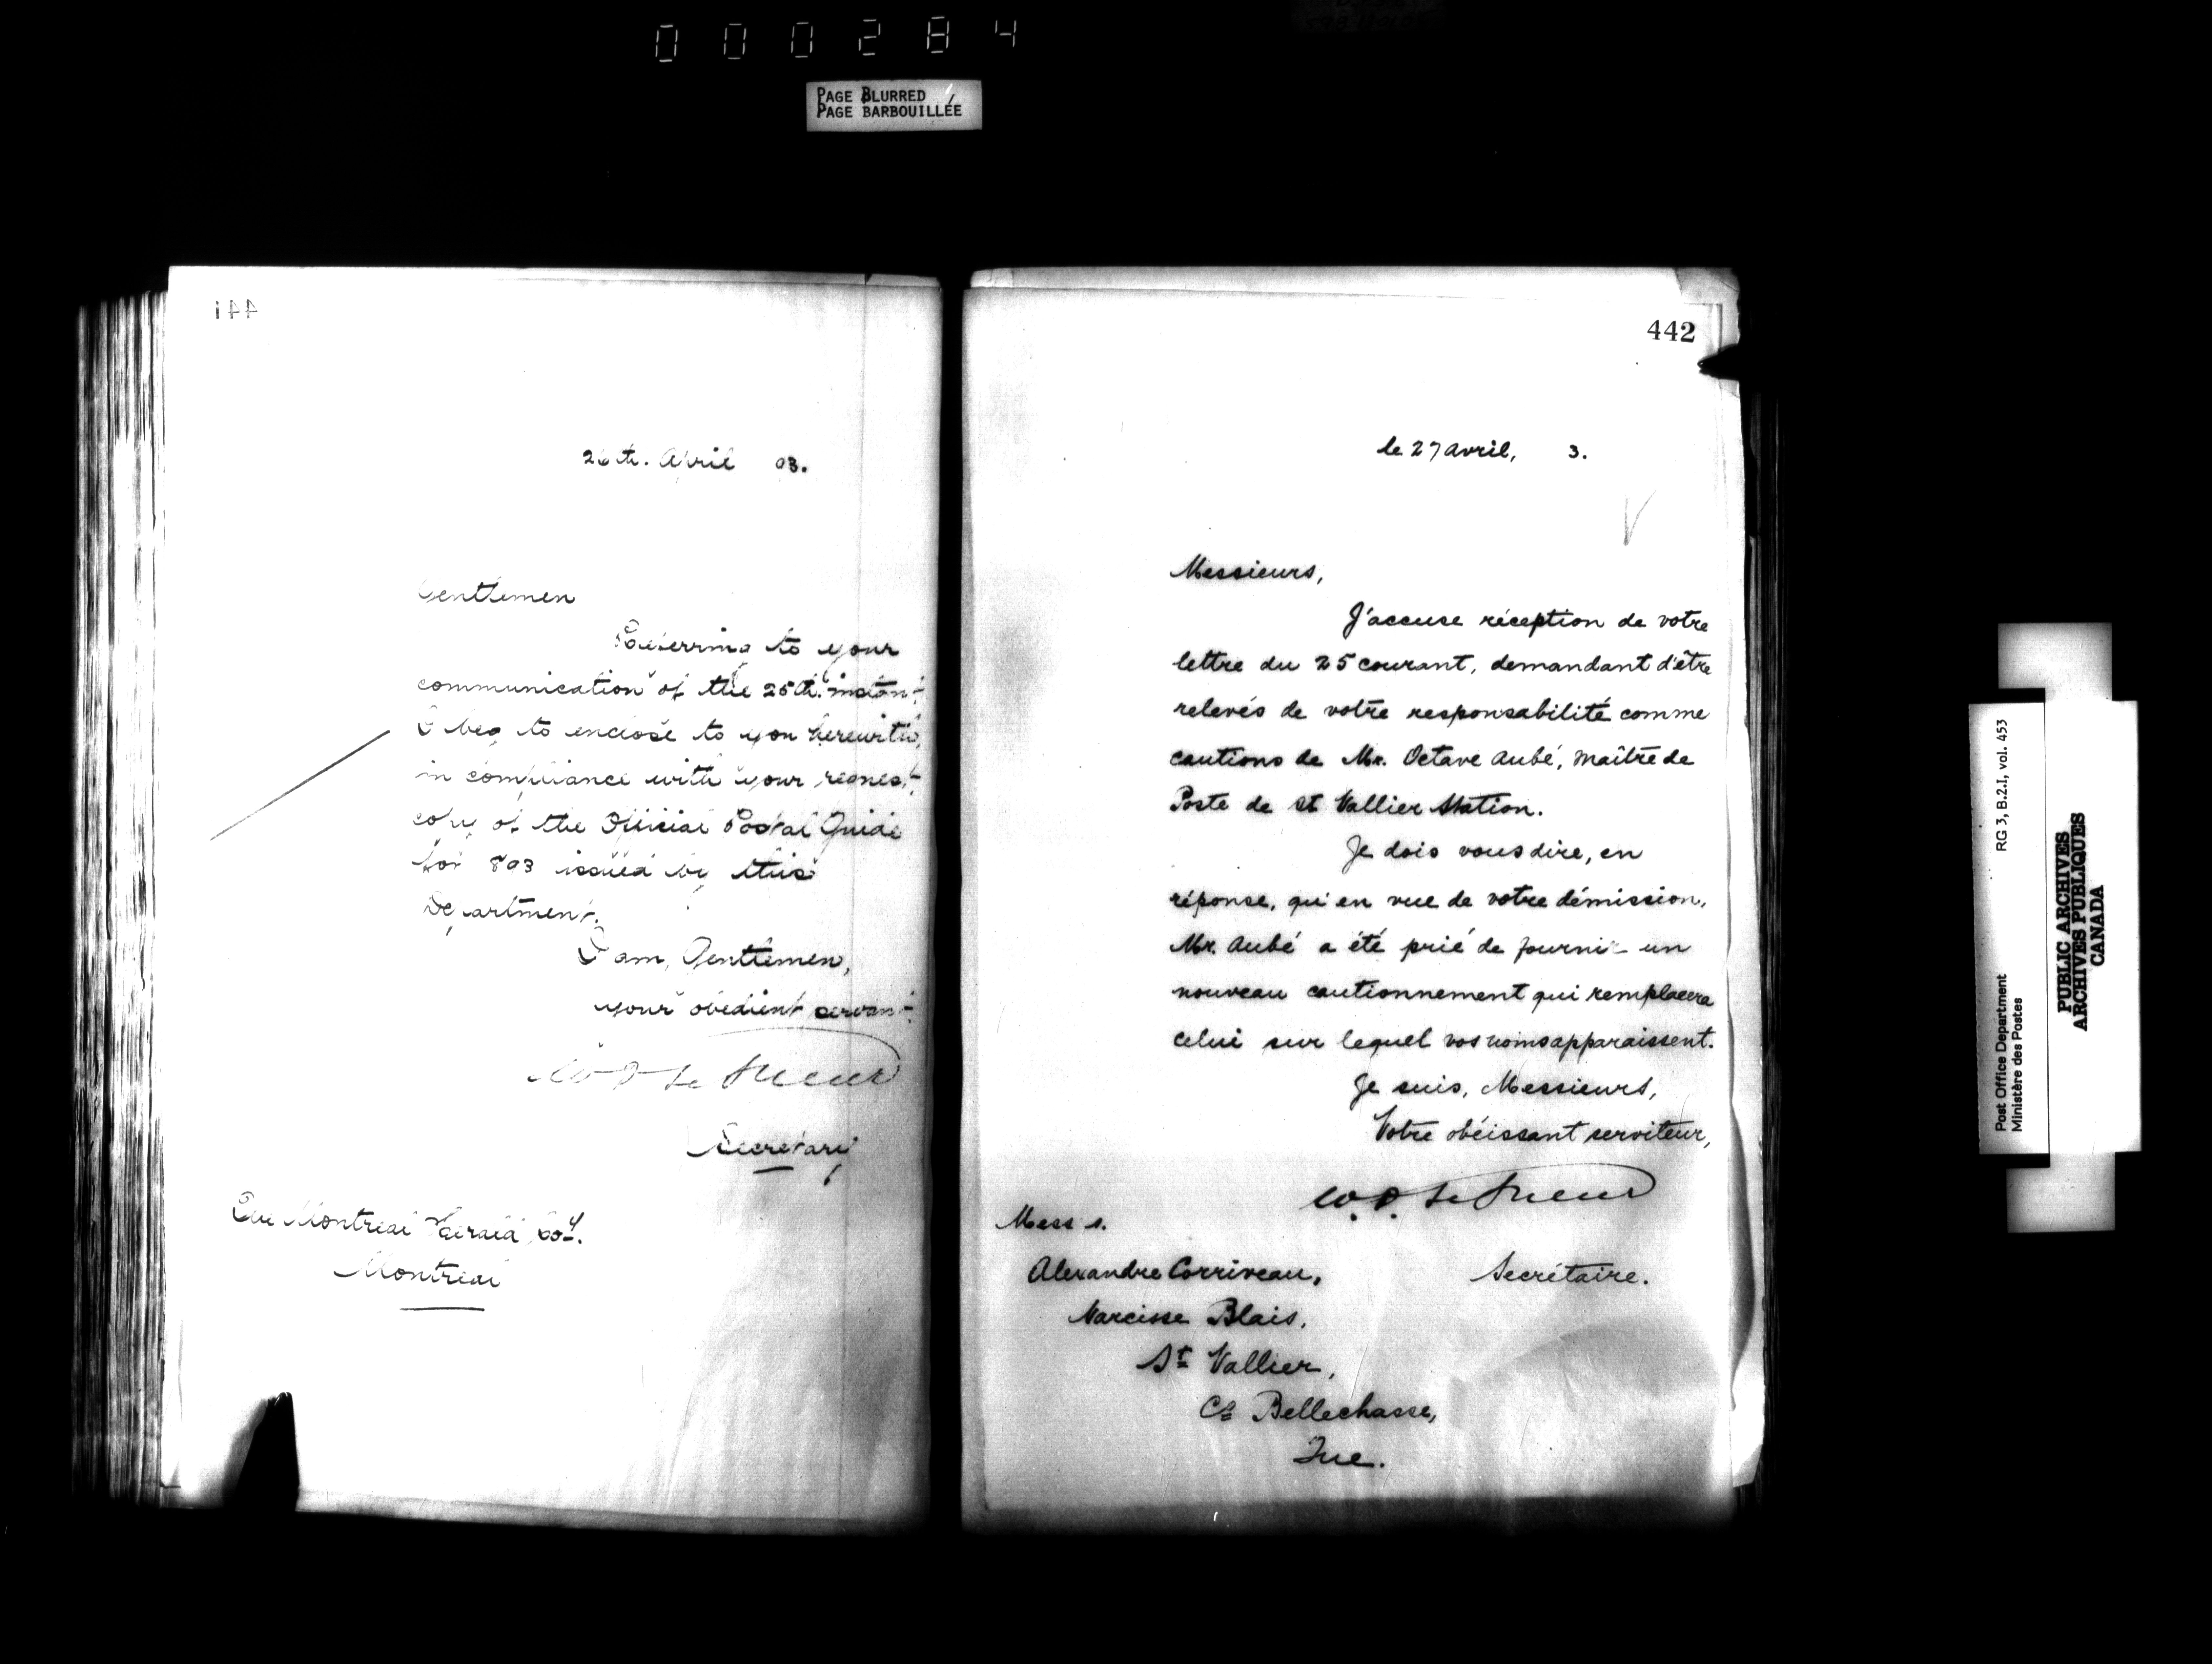 000284
PAGE BLURRED
PAGE BARBOUILLÉE
441
26th. April 93.
Gentlemen
Referring to your
communication of the 25th. instant
I beg to enclose to you herewith,
in compliance with your request,
copy of the Official Postal Guide
for 893 issued by this
Department.
I am, Gentlemen,
your obedient servant
W D Le Sueur
Secretary
The Montreal Herald Coy.
Montreal
442
le 27 avril, 3.
Messieurs,
J'accuse réception de votre
lettre du 25 courant, demandant d'être
relevés de votre responsabilité comme
cautions de Mr. Octave Aubé, maître de
Poste de St Vallier Station.
Je dois vous dire, en
réponse, qu'en vue de votre démission,
Mr. Aubé a été prié de fournir un
nouveau cautionnement qui remplacera
celui sur lequel vos noms apparaissent.
Je suis, Messieurs,
Votre obéissant serviteur,
W. D. Le Sueur
Secrétaire.
Mess s.
Alexandre Corriveau,
Narcisse Blais,
St Vallier,
Co Bellechasse,
Que.
RG 3, B.2.I, vol. 453
Post Office Department
Ministère des Postes
PUBLIC ARCHIVES
ARCHIVES PUBLIQUES
CANADA